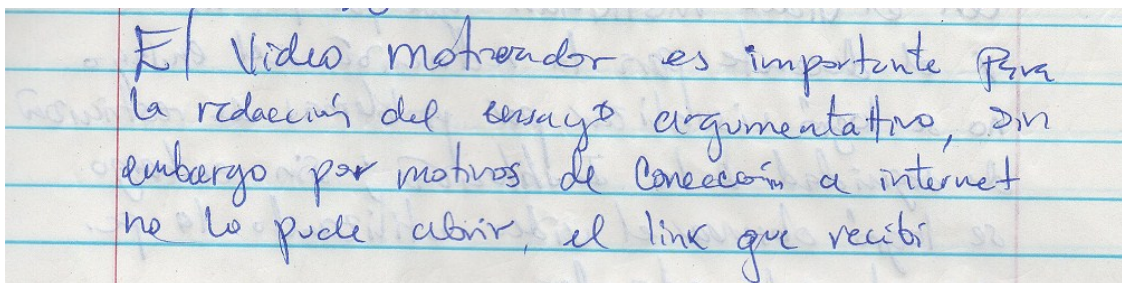 El Video motivador es importante para
la redacción del ensayo argumentativo, sin
embargo por motivos de conección a internet
no lo pude abrir, el link que recibi